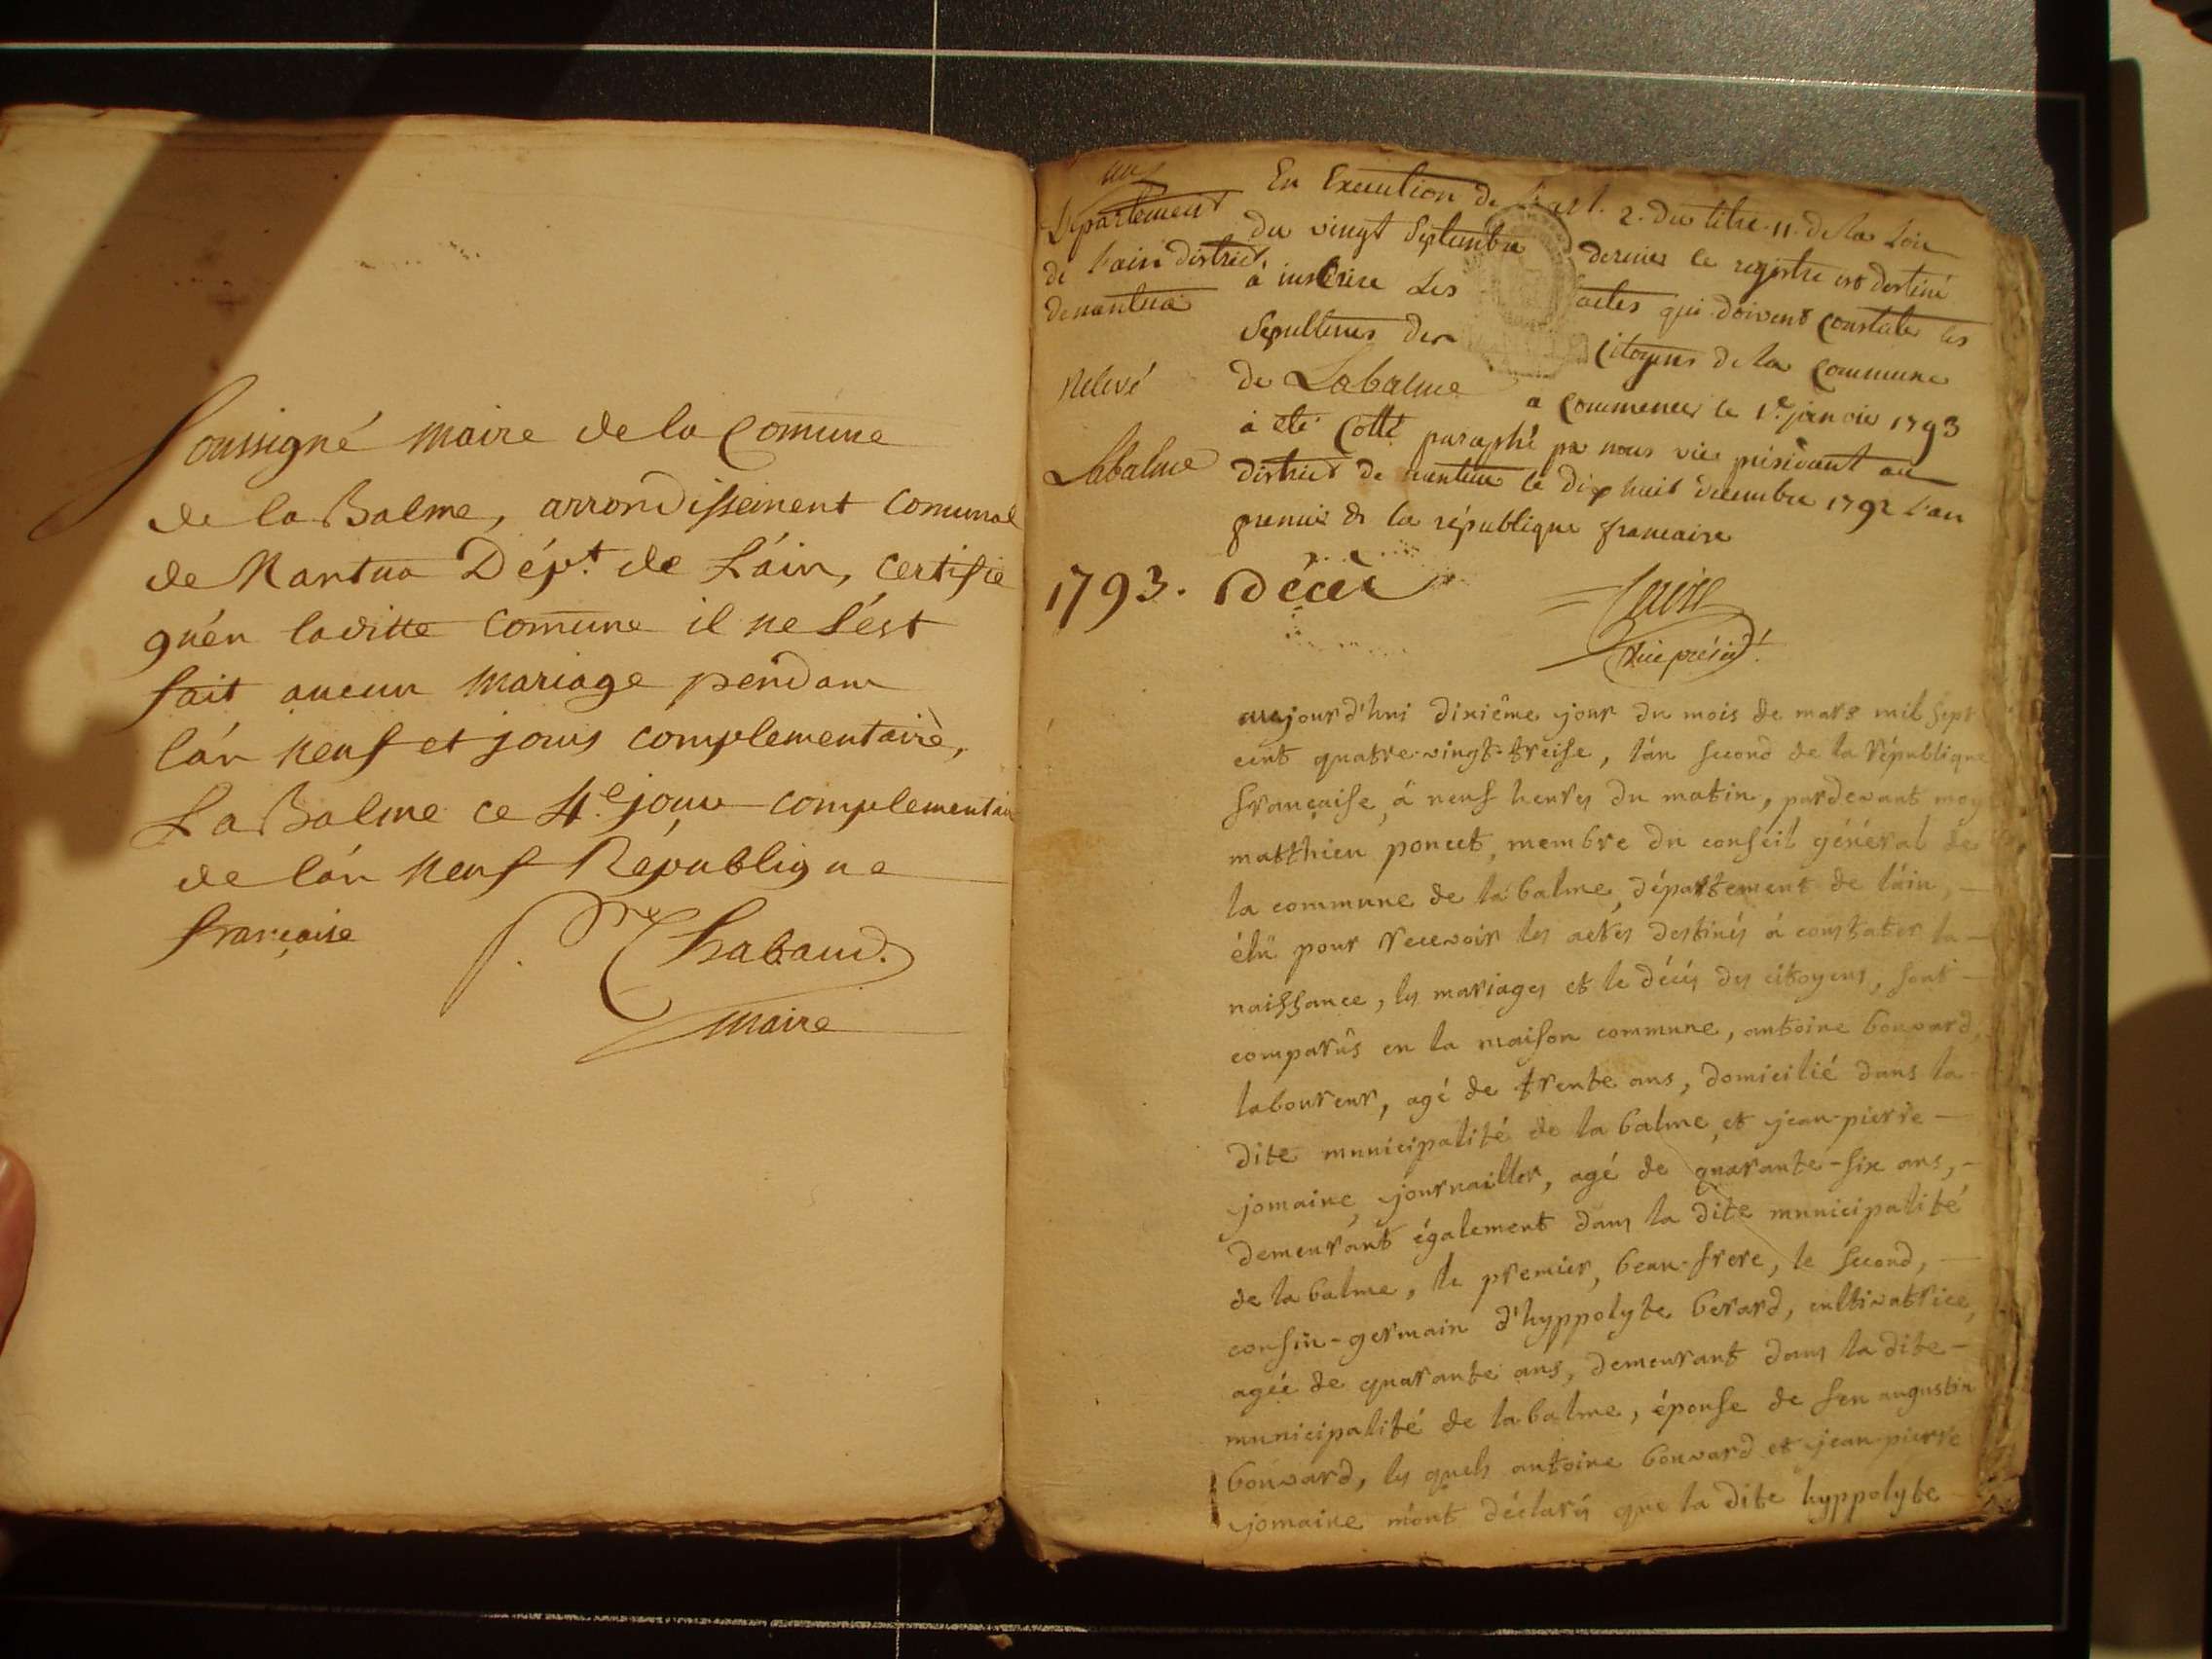 Soussigné maire de la Comune
de la Balme, arrondissement comunal
de Nantua Dép.t de L'áin, certifie
qu'én laditte comune il ne s'ést
fait aucun mariage pendant
l'án neuf et jours complementaire,
La Balme ce 4.e jour complementair
de l'án neuf République
française
Chabaud.
maire
un
Département
de l'ain district
de nantua
Relevé
Labalme
En Execution de l'art. 2. du titre 11. de la Loi
du vingt Septembre dernier ce registre est destiné
à inscrire Les actes qui doivent constater les
Sepultures des Citoyens de la Commune
de Labalme a commencer le 1.er janvier 1793
a été Cotté paraphé par nous vice présidant au
district de nantua le dix huit decembre 1792 l'an
premier de la république francaise
1793. Décès
vice présid.t
aujourd'hui dixiême jour du mois de mars mil sept
cent quatre-vingt-treise, l'án second de la république
française, á neuf heures du matin, pardevant moy
matthieu poncet, membre du conseil général de
la commune de la balme, département de l'áin, —
élu pour recevoir les actes destinés á constater la —
naissance, les mariages et le décés des citoyens, sont —
comparûs en la maison commune, antoine bouvard,
laboureur, agé de trente ans, domicilié dans la
dite municipalité de la balme, et jean-pierre —
jomaine, journaillier, agé de quarante-six ans, -
demeurant également dans la dite municipalité
de la balme, le premier, beau-frere, le second, —
cousin-germain d'hyppolyte berard, cultivatrice,
agée de quarante ans, demeurant dans la dite —
municipalité de la balme, épouse de feu augustin
bouvard, les quels antoine bouvard et jean-pierre
jomaine m'ont déclarés que la dite hyppolyte